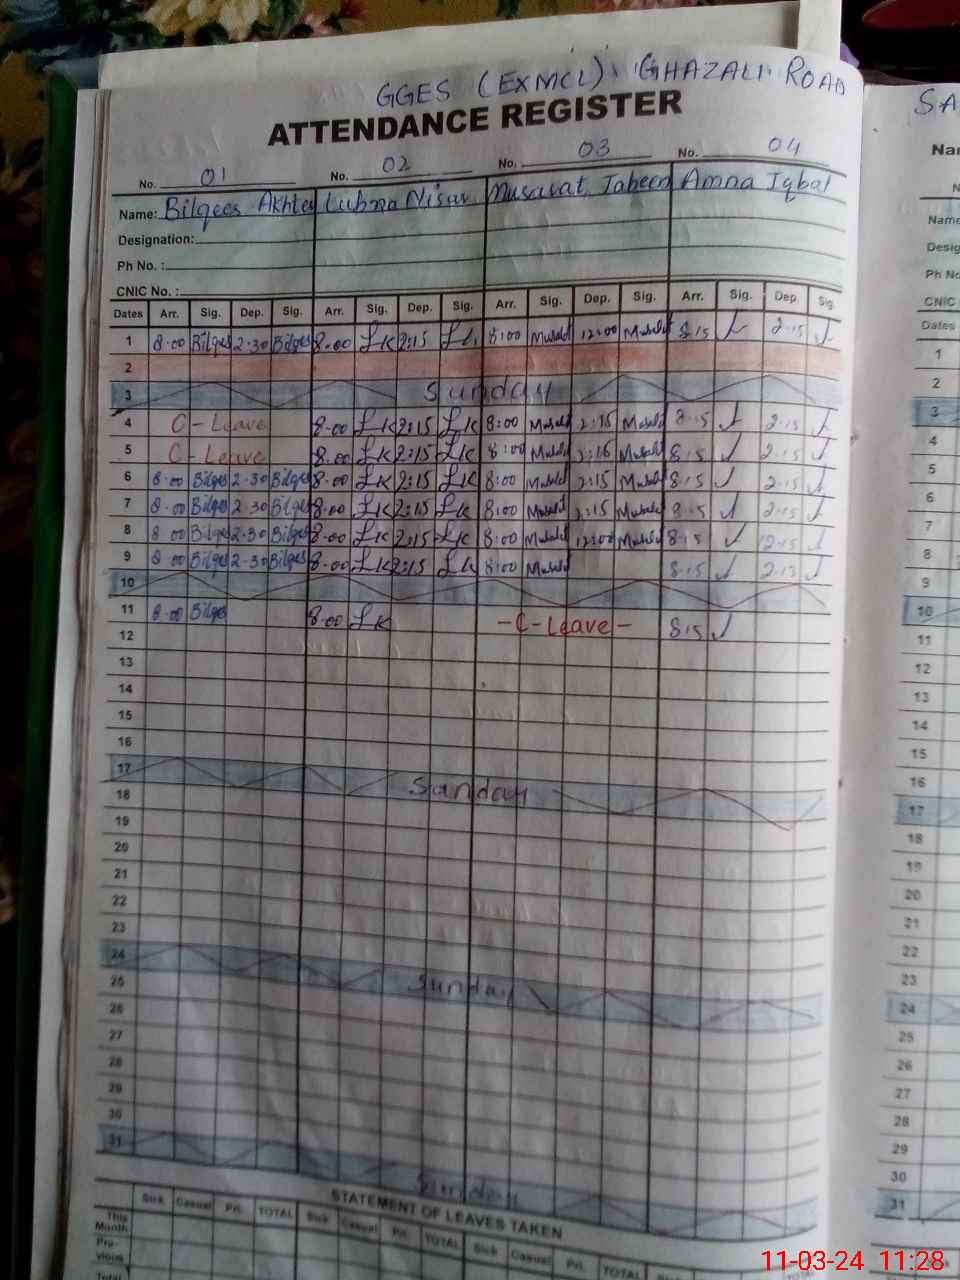 GGES (EXMCL) GHAZALI ROAD
ATTENDANCE REGISTER
No. 01 No. 02 No. 03 No. 04
Name: Bilqees Akhter Lubna Nisar Musarat Jabeen Amna Iqbal
Designation:
Ph No. :
CNIC No. :
Dates Arr. Sig. Dep. Sig. Arr. Sig. Dep. Sig. Arr. Sig. Dep. Sig. Arr. Sig. Dep. Sig.
1 8:00 Bilqes 2:30 Bilqes 8:00 LK 2:15 8:00 12:00 8:15 2:15
2
3 Sunday
4 C-Leave 8:00 LK 2:15 LK 8:00 2:15 8:15 2:15
5 C-Leave 8:00 LK 2:15 LK 8:00 2:15 8:15 2:15
6 8:00 Bilqes 2:30 Bilqes 8:00 LK 2:15 LK 8:00 2:15 8:15 2:15
7 8:00 Bilqes 2:30 Bilqes 8:00 LK 2:15 LK 8:00 2:15 8:15 2:15
8 8:00 Bilqes 2:30 Bilqes 8:00 LK 2:15 LK 8:00 12:00 8:15 12:15
9 8:00 Bilqes 2:30 Bilqes 8:00 LK 2:15 LK 8:00 8:15 2:15
10
11 8:00 Bilqes 8:00 LK -C-Leave- 8:15
12
13
14
15
16
17 Sunday
18
19
20
21
22
23
24 Sunday
25
26
27
28
29
30
31 Sunday
STATEMENT OF LEAVES TAKEN
Sick Casual Pri. TOTAL Sick Casual Pri. TOTAL Sick Casual Pri. TOTAL
This Month
Pre-vious
Total
SA
Nar
Name
Desig
Ph No
CNIC
Dates
1
2
3
4
5
6
7
8
9
10
11
12
13
14
15
16
17
18
19
20
21
22
23
24
25
26
27
28
29
30
31
11-03-24 11:28